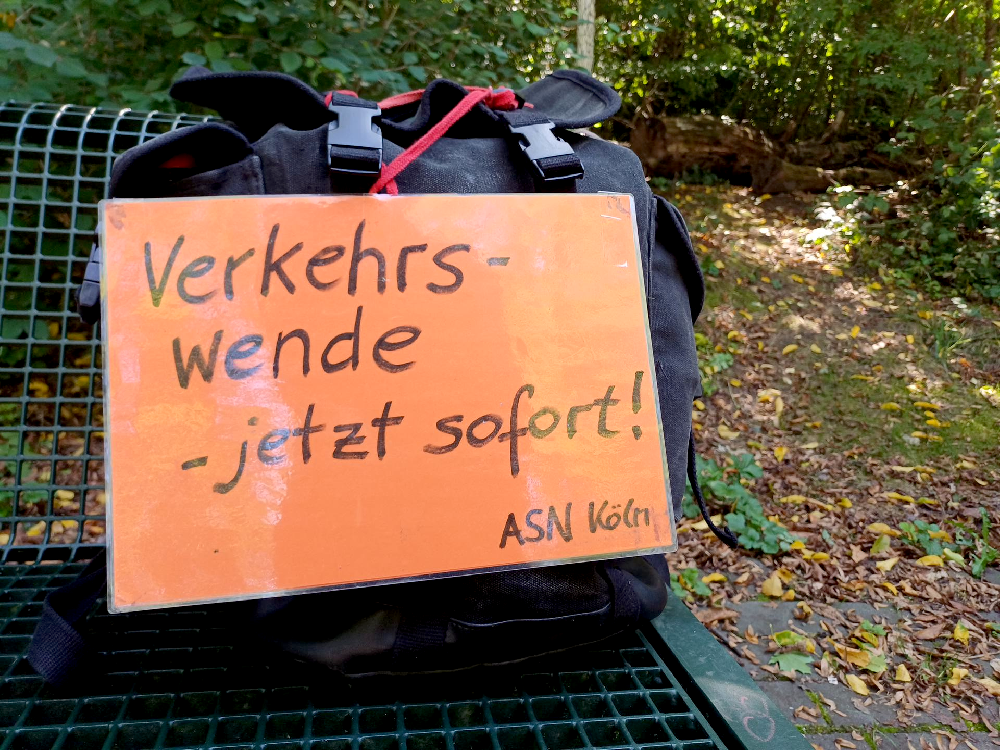 Verkehrs-
wende
-jetzt sofort!
ASN Köln